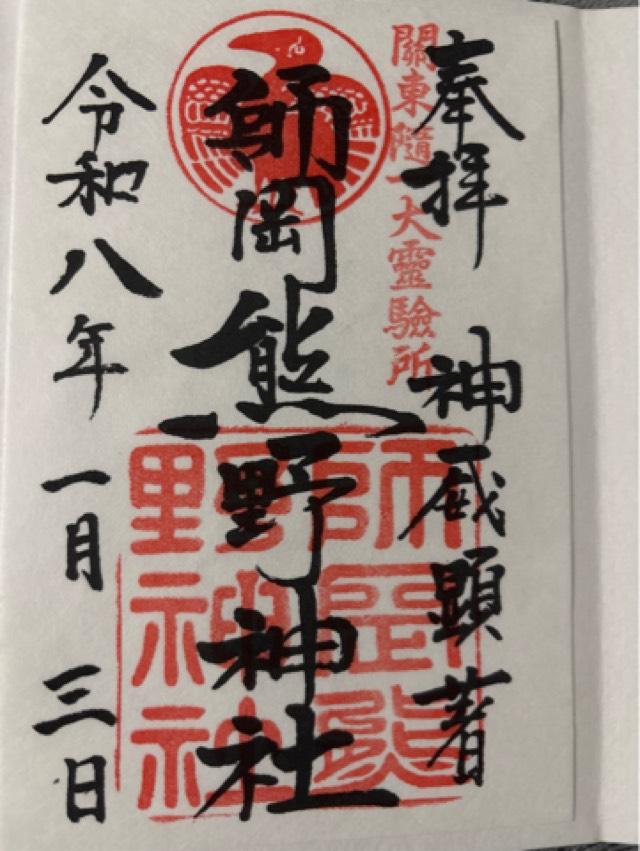 奉拝 神威顕著
關東隨一大靈驗所
師岡熊野神社
師岡熊野神社
令和八年一月三日